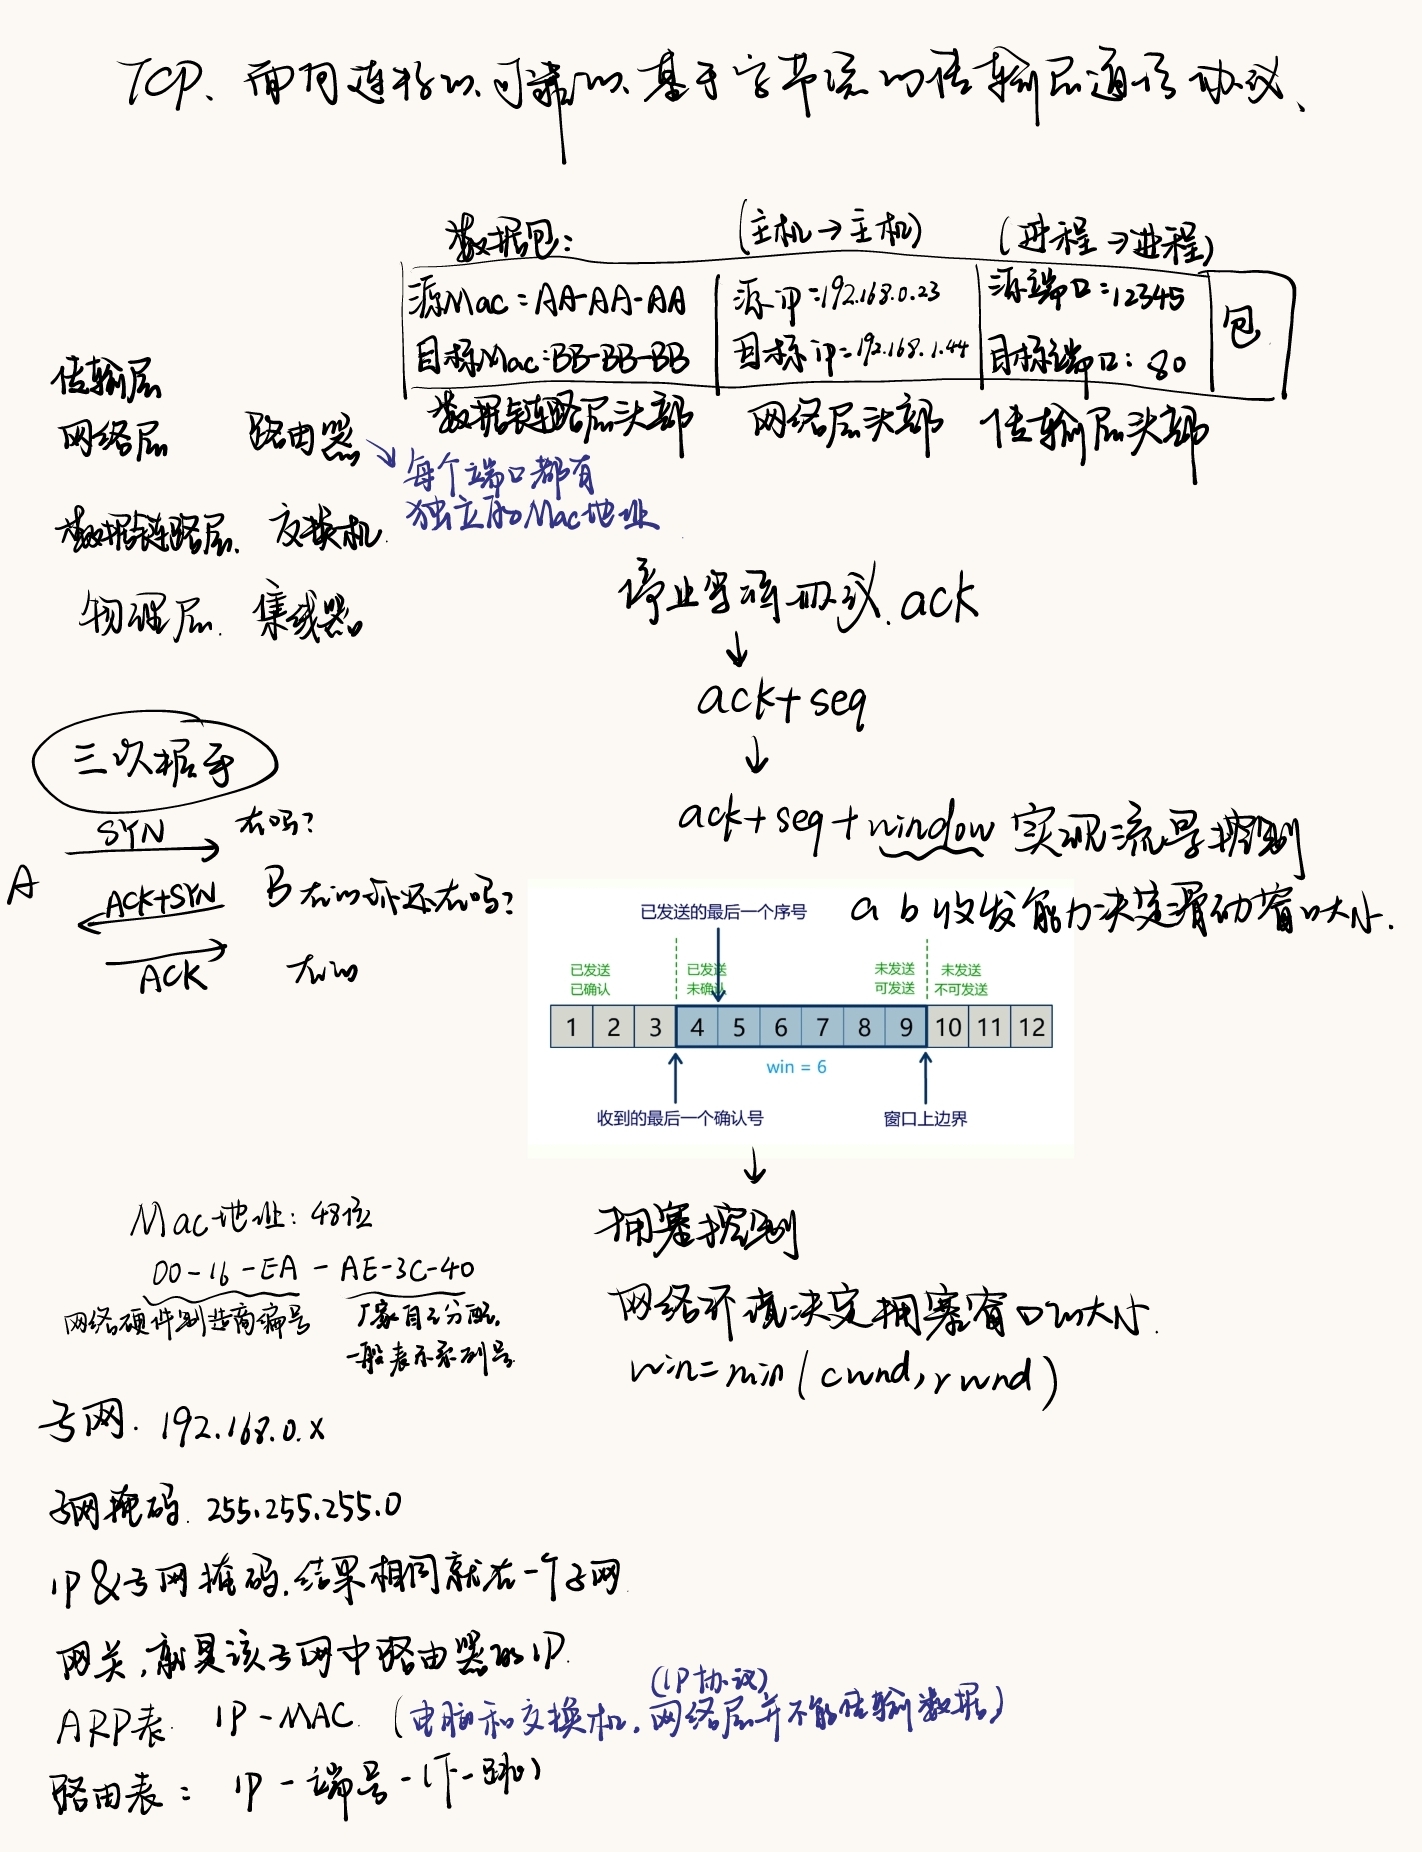 TCP、面向连接的、可靠的、基于字节流的传输层通信协议、
数据包: (主机→主机) (进程→进程)
源Mac:AA-AA-AA 源ip:192.168.0.23 源端口:12345 包
目标Mac:BB-BB-BB 目标ip=192.168.1.44 目标端口:80
数据链路层头部 网络层头部 传输层头部
传输层
网络层 路由器
每个端口都有
独立的Mac地址
数据链路层. 交换机.
物理层. 集线器。
停止等待协议.ack
↓
ack+seq
↓
ack+seq+window 实现流量控制
a b收发能力决定滑动窗口大小.
三次握手
SYN 在吗?
A ACK+SYN B 在的你还在吗?
ACK 在的
已发送的最后一个序号
已发送 已发送 未发送 未发送
已确认 未确认 可发送 不可发送
1 2 3 4 5 6 7 8 9 10 11 12
win = 6
收到的最后一个确认号 窗口上边界
↓
拥塞控制
网络环境决定拥塞窗口的大小.
win=min(cwnd,rwnd)
Mac地址: 48位
00-16-EA-AE-3C-40
网络硬件制造商编号 厂家自己分配,
一般表示系列号.
子网. 192.168.0.x
子网掩码. 255.255.255.0
IP&子网掩码.结果相同就在一个子网.
网关,就是该子网中路由器的IP.
(IP协议)
ARP表. IP-MAC. (电脑和交换机,网络层并不能传输数据)
路由表: IP-端号-(下一跳)